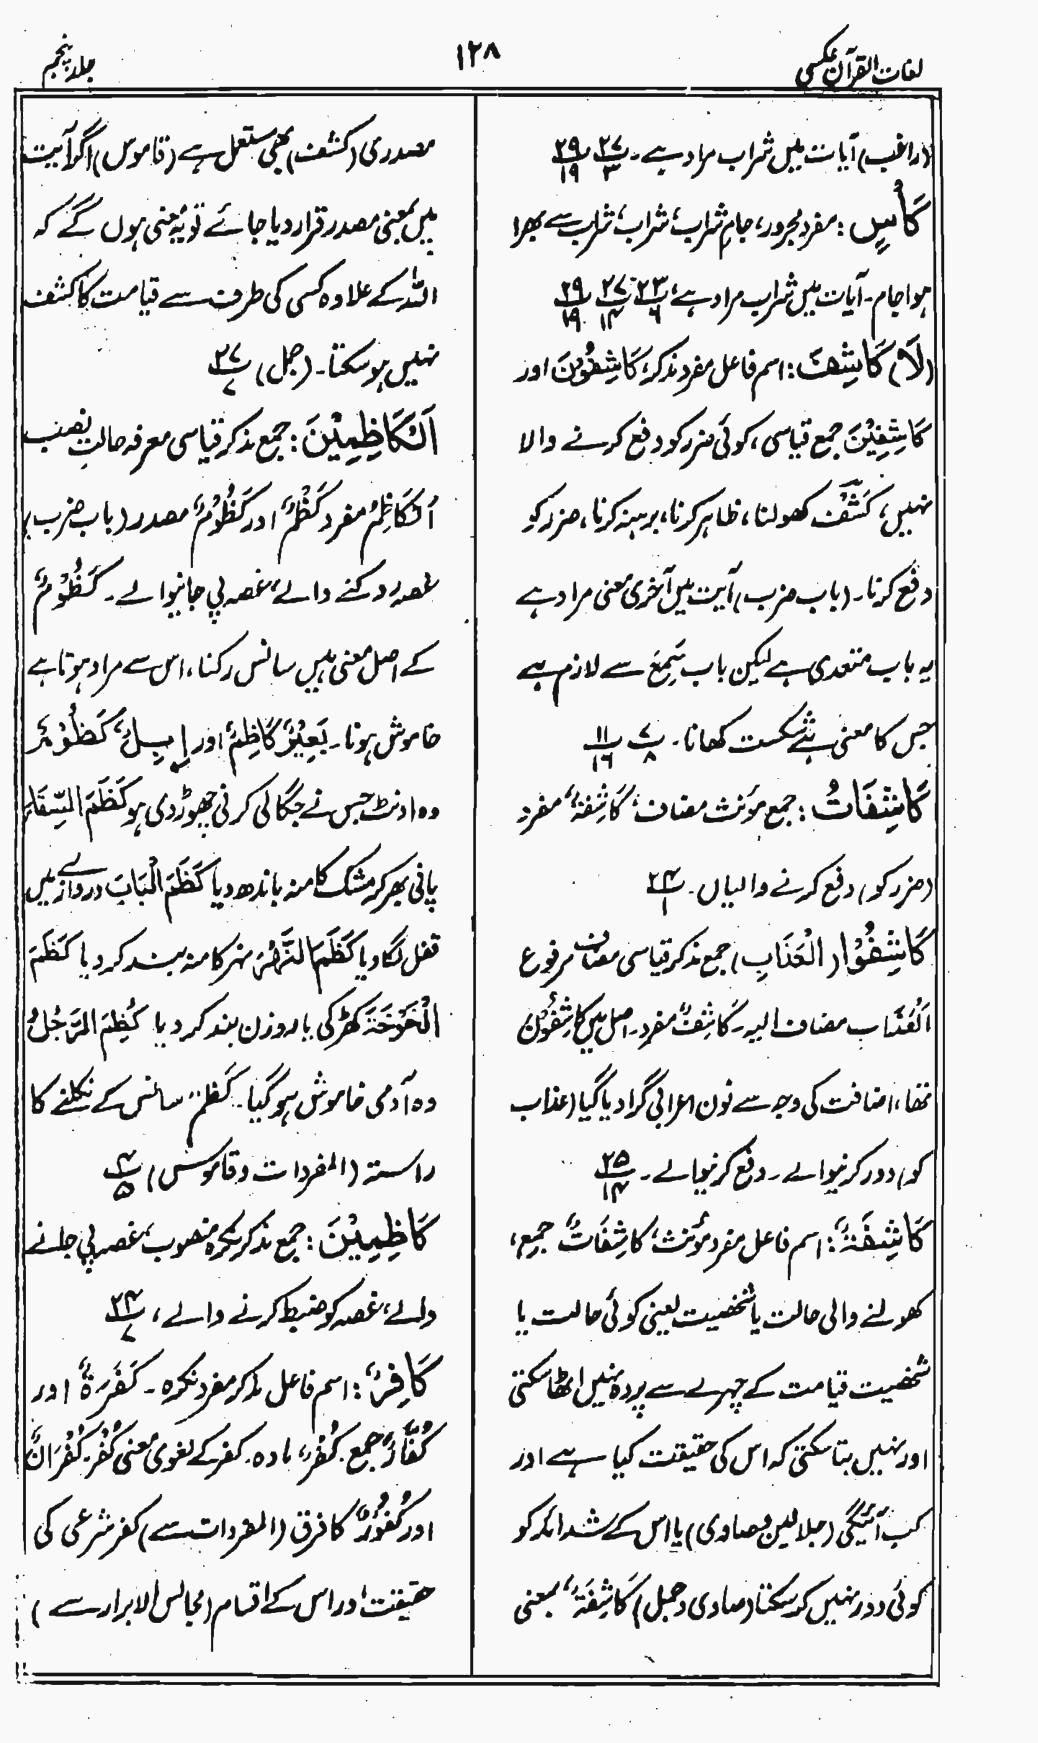 لغات القرآن عکسی
۱۲۸
جلد پنجم
(راغب) آیات میں شراب مراد ہے۔ ۲۷/۳ ۲۹/۱۹
کَأْسٍ : مفرد مجرور، جامِ شراب، شراب، شراب سے بھرا
ہوا جام۔ آیات میں شراب مراد ہے، ۲۳/۶ ۲۷/۱۴ ۲۹/۱۹
(لَا) کَاشِفَ : اسم فاعل مفرد مذکر، کَاشِفُوْنَ اور
کَاشِفِیْنَ جمع قیاسی، کوئی ضرر کو دفع کرنے والا
نہیں، کَشْفٌ کھولنا، ظاہر کرنا، برہنہ کرنا، ضرر کو
دفع کرنا۔ (باب ضرب) آیت میں آخری معنی مراد ہے
یہ باب متعدی ہے لیکن باب سَمِعَ سے لازم ہے
جس کا معنی ہے شکست کھانا۔ ۷/۸ ۱۱/۱۶
کَاشِفَاتُ : جمع مؤنث مضاف، کَاشِفَۃٌ مفرد
(ضرر کو) دفع کرنے والیاں۔ ۲۴/۱
کَاشِفُوْا (الْعَذَابِ) جمع مذکر قیاسی مضاف مرفوع
اَلْعَذَاب مضاف الیہ۔ کَاشِفٌ مفرد۔ اصل میں کَاشِفُوْنَ
تھا، اضافت کی وجہ سے نون اعرابی گرا دیا گیا (عذاب
کو) دور کرنیوالے۔ دفع کرنیوالے۔ ۲۵/۱۴
کَاشِفَۃٌ : اسم فاعل مفرد مؤنث، کَاشِفَاتٌ جمع،
کھولنے والی حالت یا شخصیت یعنی کوئی حالت یا
شخصیت قیامت کے چہرے سے پردہ نہیں اٹھا سکتی
اور نہیں بتا سکتی کہ اس کی حقیقت کیا ہے اور
کب آئیگی (جلالین و صاوی) یا اس کے شدائد کو
کوئی دور نہیں کر سکتا (صاوی و جمل) کَاشِفَۃٌ بمعنی
مصدری (کشف) بھی مستعمل ہے (قاموس) اگر آیت
میں بمعنی مصدر قرار دیا جائے تو یہ معنی ہوں گے کہ
اللہ کے علاوہ کسی کی طرف سے قیامت کا کشف
نہیں ہو سکتا۔ (جمل) ۲۷/۷
اَلْکَاظِمِیْنَ : جمع مذکر قیاسی معرفہ حالتِ نصب
اَلْکَاظِمُ مفرد کَظْمٌ اور کَظُوْمٌ مصدر (باب ضرب)
غصہ روکنے والے، غصہ پی جانیوالے۔ کَظُوْمٌ
کے اصل معنی ہیں سانس رکنا، اس سے مراد ہوتا ہے
خاموش ہونا۔ بَعِیْرٌ کَاظِمٌ اور اِبِلٌ کَظُوْمٌ
وہ اونٹ جس نے جگالی کرنی چھوڑ دی ہو کَظَمَ السِّقَاءَ
پانی بھر کر مشک کا منہ باندھ دیا کَظَمَ الْبَابَ دروازے میں
قفل لگا دیا کَظَمَ النَّهْرَ نہر کا منہ بند کر دیا کَظَمَ
الْخَوْخَۃَ کھڑکی یا روزن بند کر دیا کُظِمَ الرَّجُلُ
وہ آدمی خاموش ہو گیا۔ کَظْمٌ سانس کے نکلنے کا
راستہ (المفردات و قاموس) ۴/۵
کَاظِمِیْنَ : جمع مذکر نکرہ منصوب، غصہ پی جانے
والے، غصہ کو ضبط کرنے والے، ۲۴/۷
کَافِرٌ : اسم فاعل مذکر مفرد نکرہ۔ کَفَرَۃٌ اور
کُفَّارٌ جمع۔ کُفْرٌ مادہ۔ کفر کے لغوی معنی کُفْر۔ کُفْرَانٌ
اور کُفُوْرٌ کا فرق (المفردات سے) کفر شرعی کی
حقیقت اور اس کے اقسام (مجالس الابرار سے)